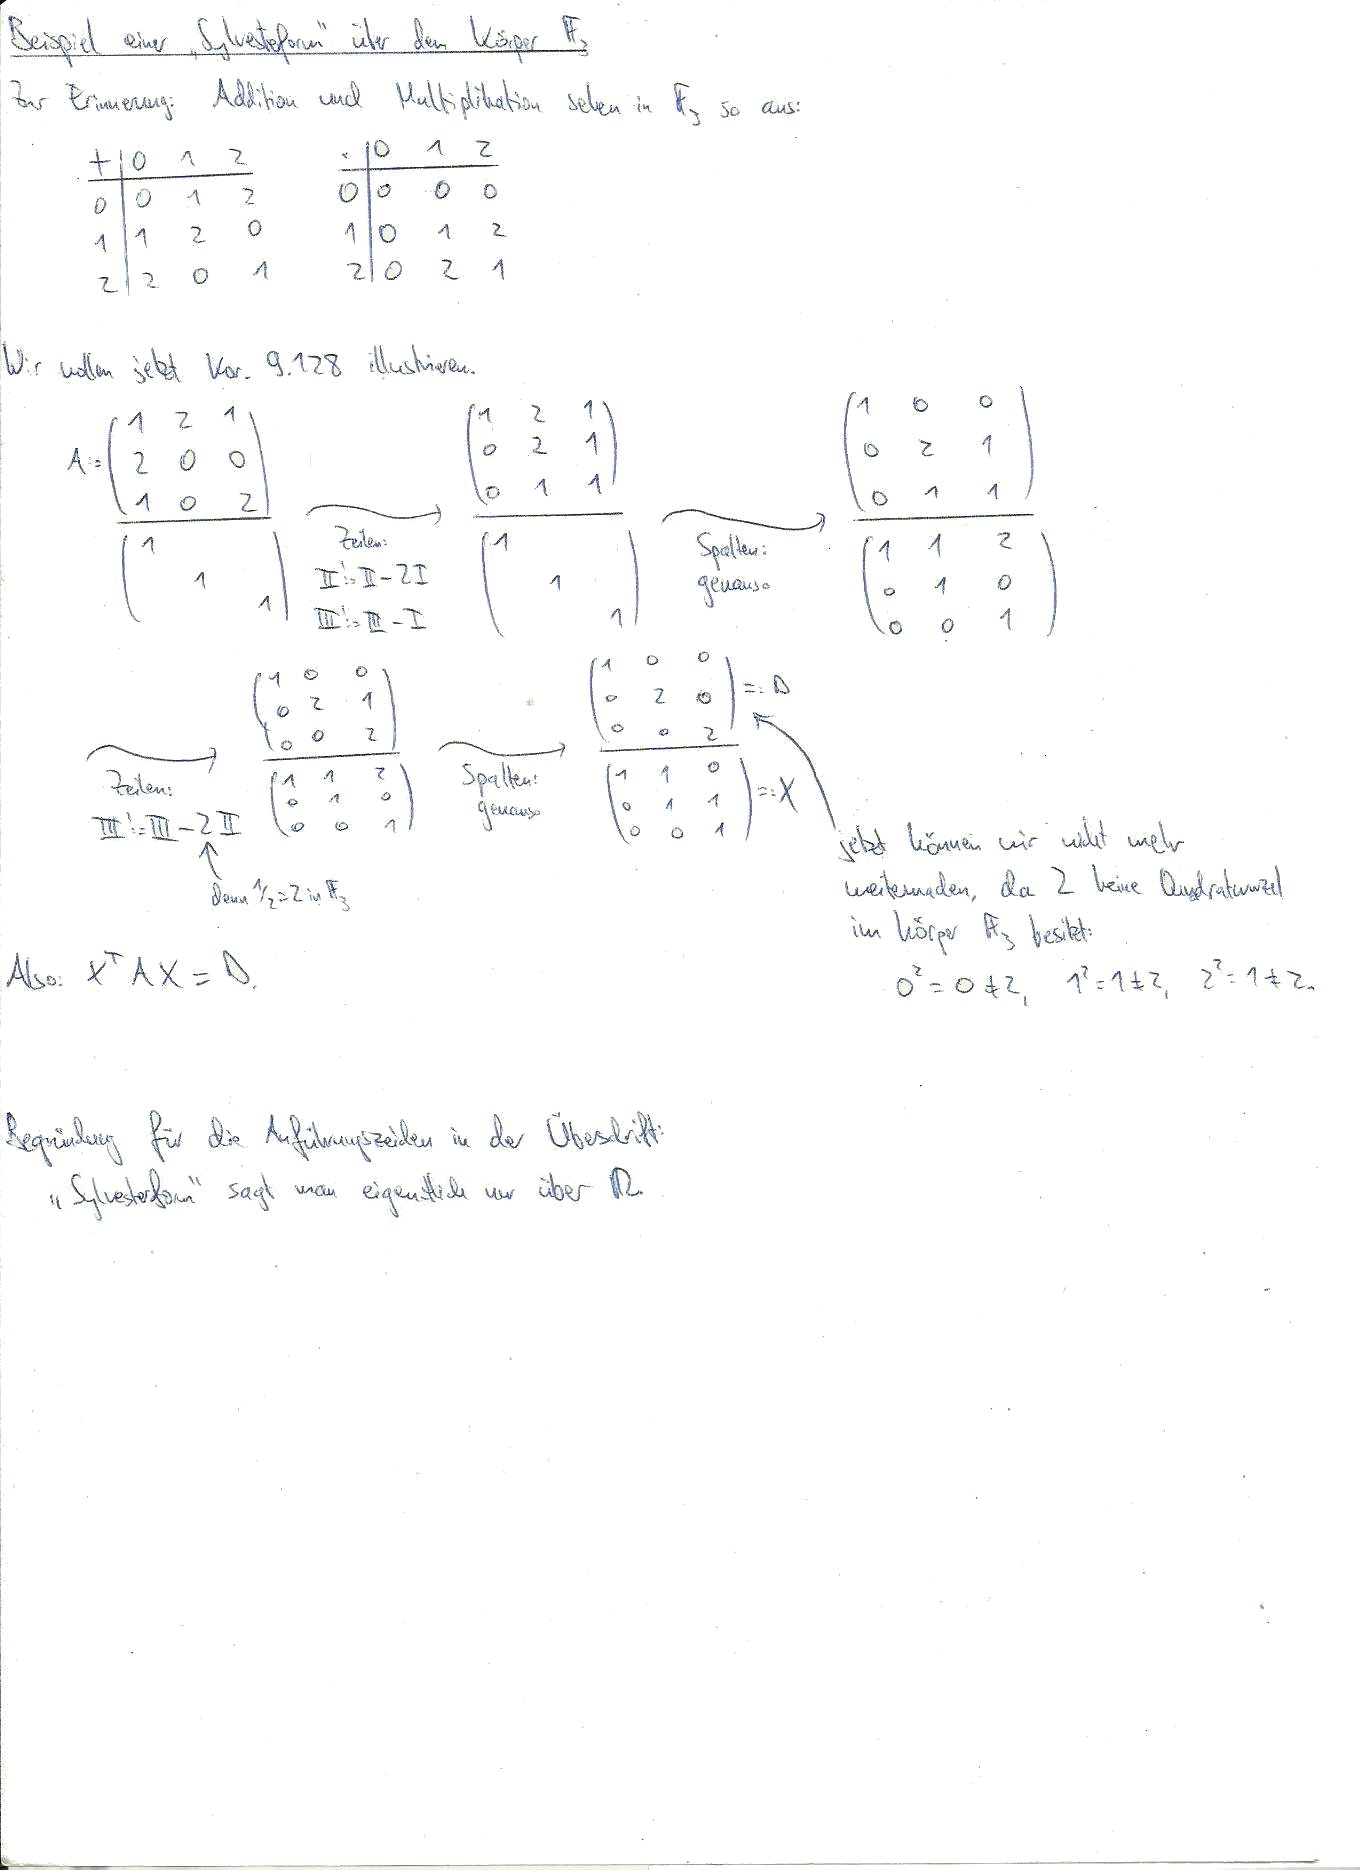 Beispiel einer „Sylvesterform“ über dem Körper 𝔽₃
Zur Erinnerung: Addition und Multiplikation sehen in 𝔽₃ so aus:
+ | 0 1 2    · | 0 1 2
0 | 0 1 2    0 | 0 0 0
1 | 1 2 0    1 | 0 1 2
2 | 2 0 1    2 | 0 2 1
Wir wollen jetzt Kor. 9.128 illustrieren.
A := (1 2 1
2 0 0
1 0 2)
(1
1
1)
Zeilen:
II' := II - 2I
III' := III - I
(1 2 1
0 2 1
0 1 1)
(1
1
1)
Spalten:
genauso
(1 0 0
0 2 1
0 1 1)
(1 1 2
0 1 0
0 0 1)
Zeilen:
III' := III - 2II
denn 1/2 = 2 in 𝔽₃
(1 0 0
0 2 1
0 0 2)
(1 1 2
0 1 0
0 0 1)
Spalten:
genauso
(1 0 0
0 2 0
0 0 2) =: D
(1 1 0
0 1 1
0 0 1) =: X
jetzt können wir nicht mehr
weitermachen, da 2 keine Quadratwurzel
im Körper 𝔽₃ besitzt:
0² = 0 ≠ 2, 1² = 1 ≠ 2, 2² = 1 ≠ 2.
Also: XᵀAX = D.
Begründung für die Anführungszeichen in der Überschrift:
„Sylvesterform“ sagt man eigentlich nur über ℝ.